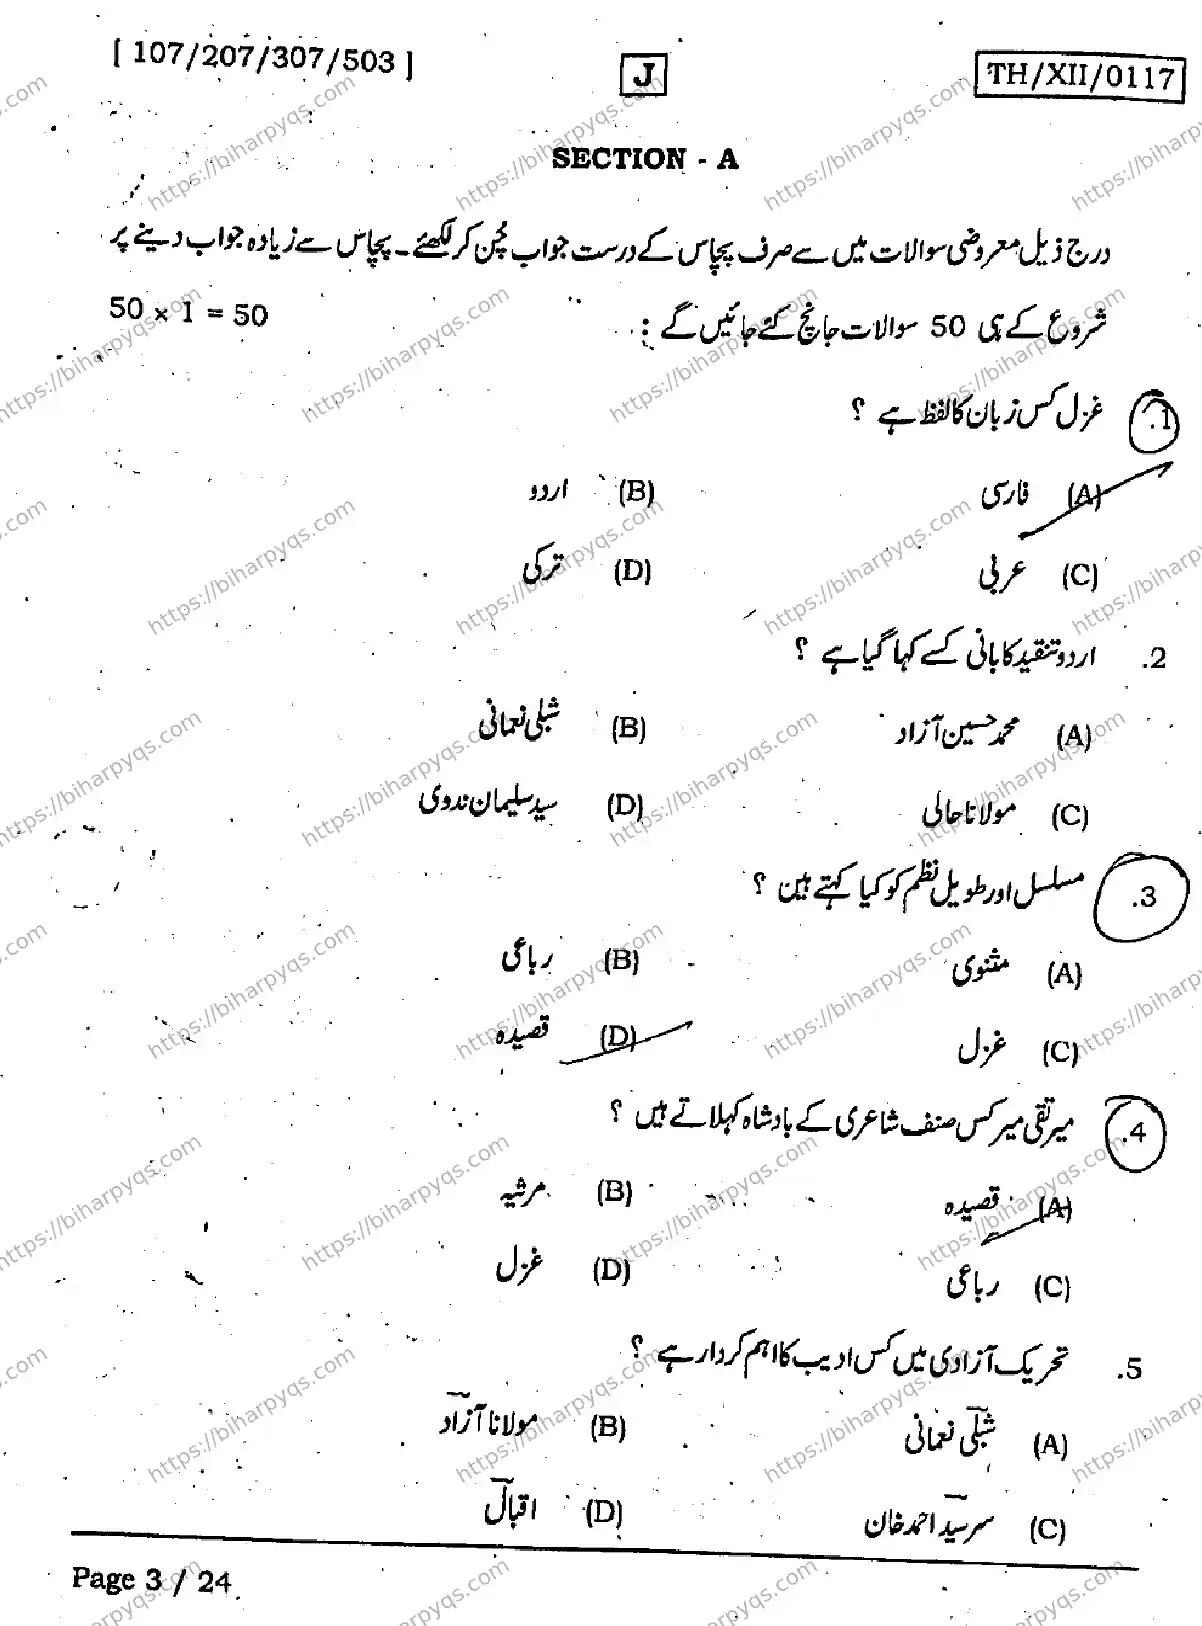 [ 107/207/307/503 ] J TH/XII/0117
SECTION - A
درج ذیل معروضی سوالات میں سے صرف پچاس کے درست جواب چُن کر لکھئے۔ پچاس سے زیادہ جواب دینے پر
شروع کے ہی 50 سوالات جانچ کئے جائیں گے : 50 × 1 = 50
1. غزل کس زبان کا لفظ ہے ؟
(A) فارسی (B) اردو
(C) عربی (D) ترکی
2. اردو تنقید کا بانی کسے کہا گیا ہے ؟
(A) محمد حسین آزاد (B) شبلی نعمانی
(C) مولانا حالی (D) سید سلیمان ندوی
3. مسلسل اور طویل نظم کو کیا کہتے ہین ؟
(A) مثنوی (B) رباعی
(C) غزل (D) قصیدہ
4. میر تقی میر کس صنف شاعری کے بادشاہ کہلاتے ہیں ؟
(A) قصیدہ (B) مرثیہ
(C) رباعی (D) غزل
5. تحریک آزادی میں کس ادیب کا اہم کردار ہے ؟
(A) شبلی نعمانی (B) مولانا آزاد
(C) سر سید احمد خان (D) اقبال
Page 3 / 24
https://biharpyqs.com